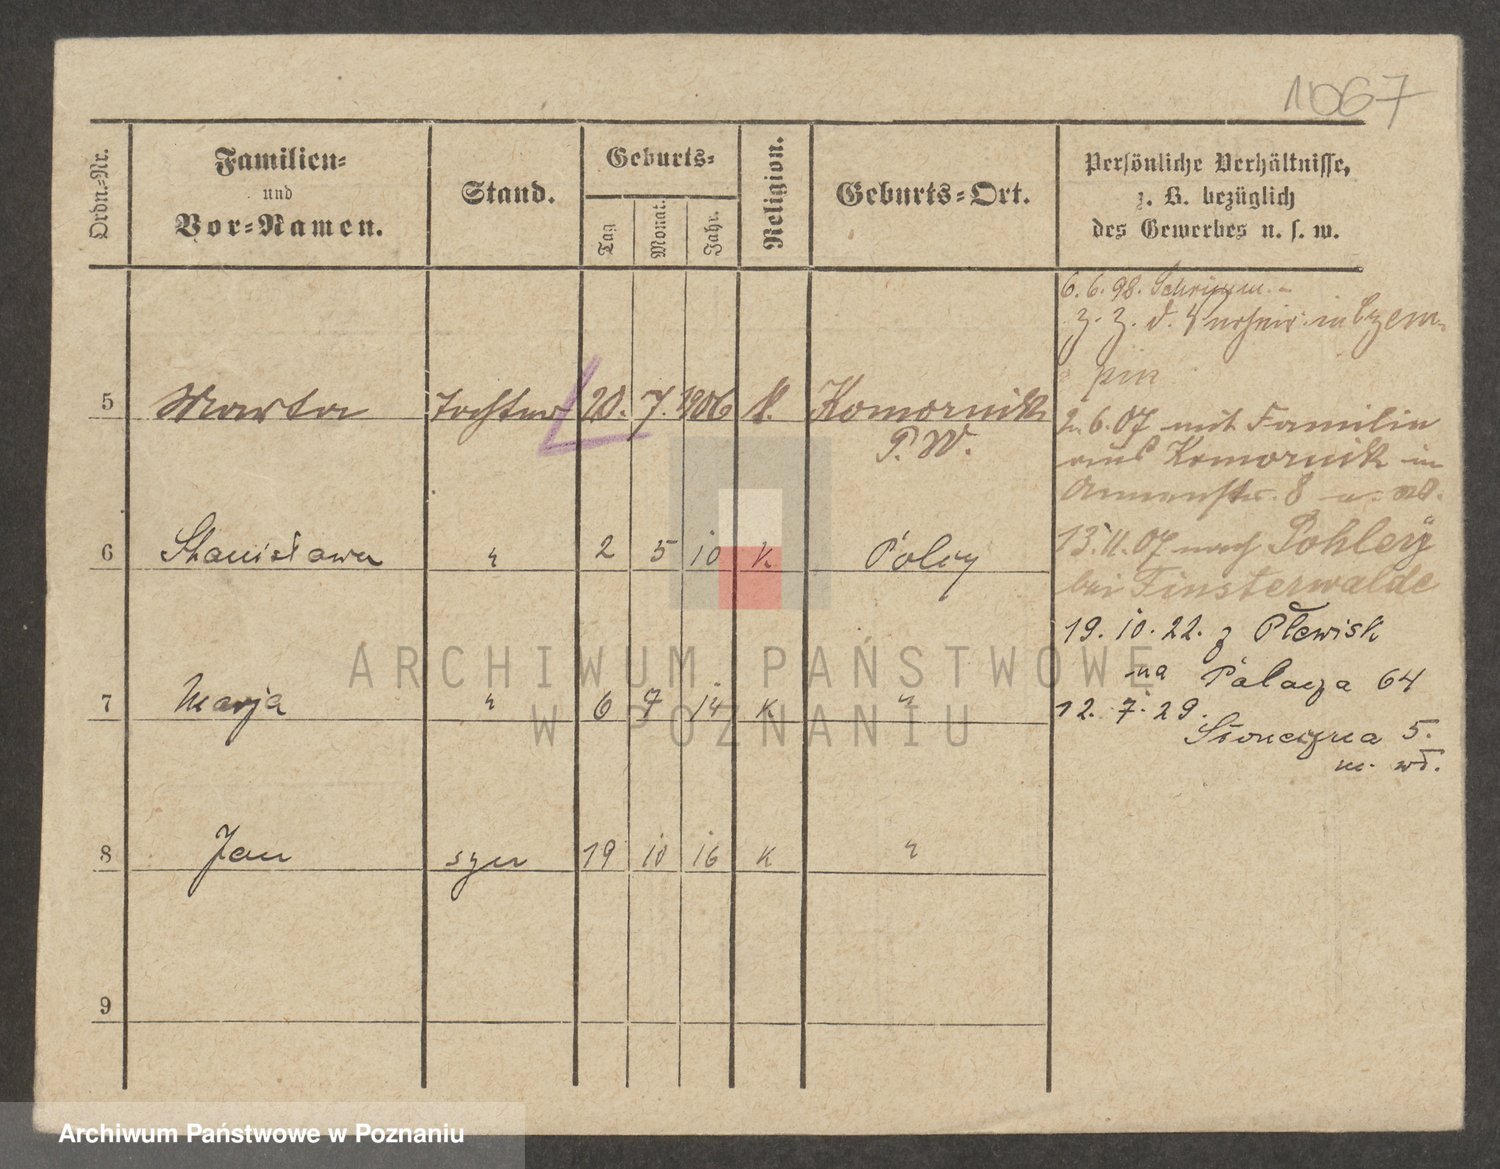 1067
Ordn.=Nr.
Familien=
und
Vor=Namen.
Stand.
Geburts=
Tag
Monat.
Jahr.
Religion.
Geburts=Ort.
Persönliche Verhältnisse,
z. B. bezüglich
des Gewerbes u. s. w.
6. 6. 98. Schrimm. -
z. Z. d. in Czem-
pin
5 Marta Tochter 20. 7. 1906 k. Komornik
P. W.
2. 6. 07 mit Familie
aus Komornik in
8
6 Stanisława " 2 5 10 k
13. 11. 07 nach Pohley
bei Finsterwalde
19. 10. 22. z Plewisk
na Palacza 64
7 Marja " 6 7 14 k "
12. 7. 29.
Słoneczna 5.
m. wł.
8 Jan syn 19 10 16 k "
9
ARCHIWUM PAŃSTWOWE
W POZNANIU
Archiwum Państwowe w Poznaniu